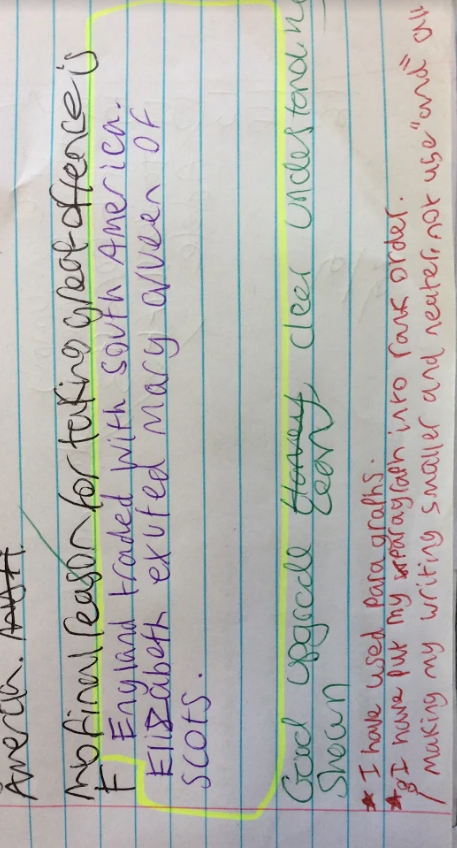 America.
My final reason for taking great offence is
F England traded with south America.
Elizabeth exuted mary queen of
scots.
Good upgrade clear understanding
Shown
* I have used paragraphs.
* I have put my paragraph into rank order.
/ making my writing smaller and neater, not use "and" all